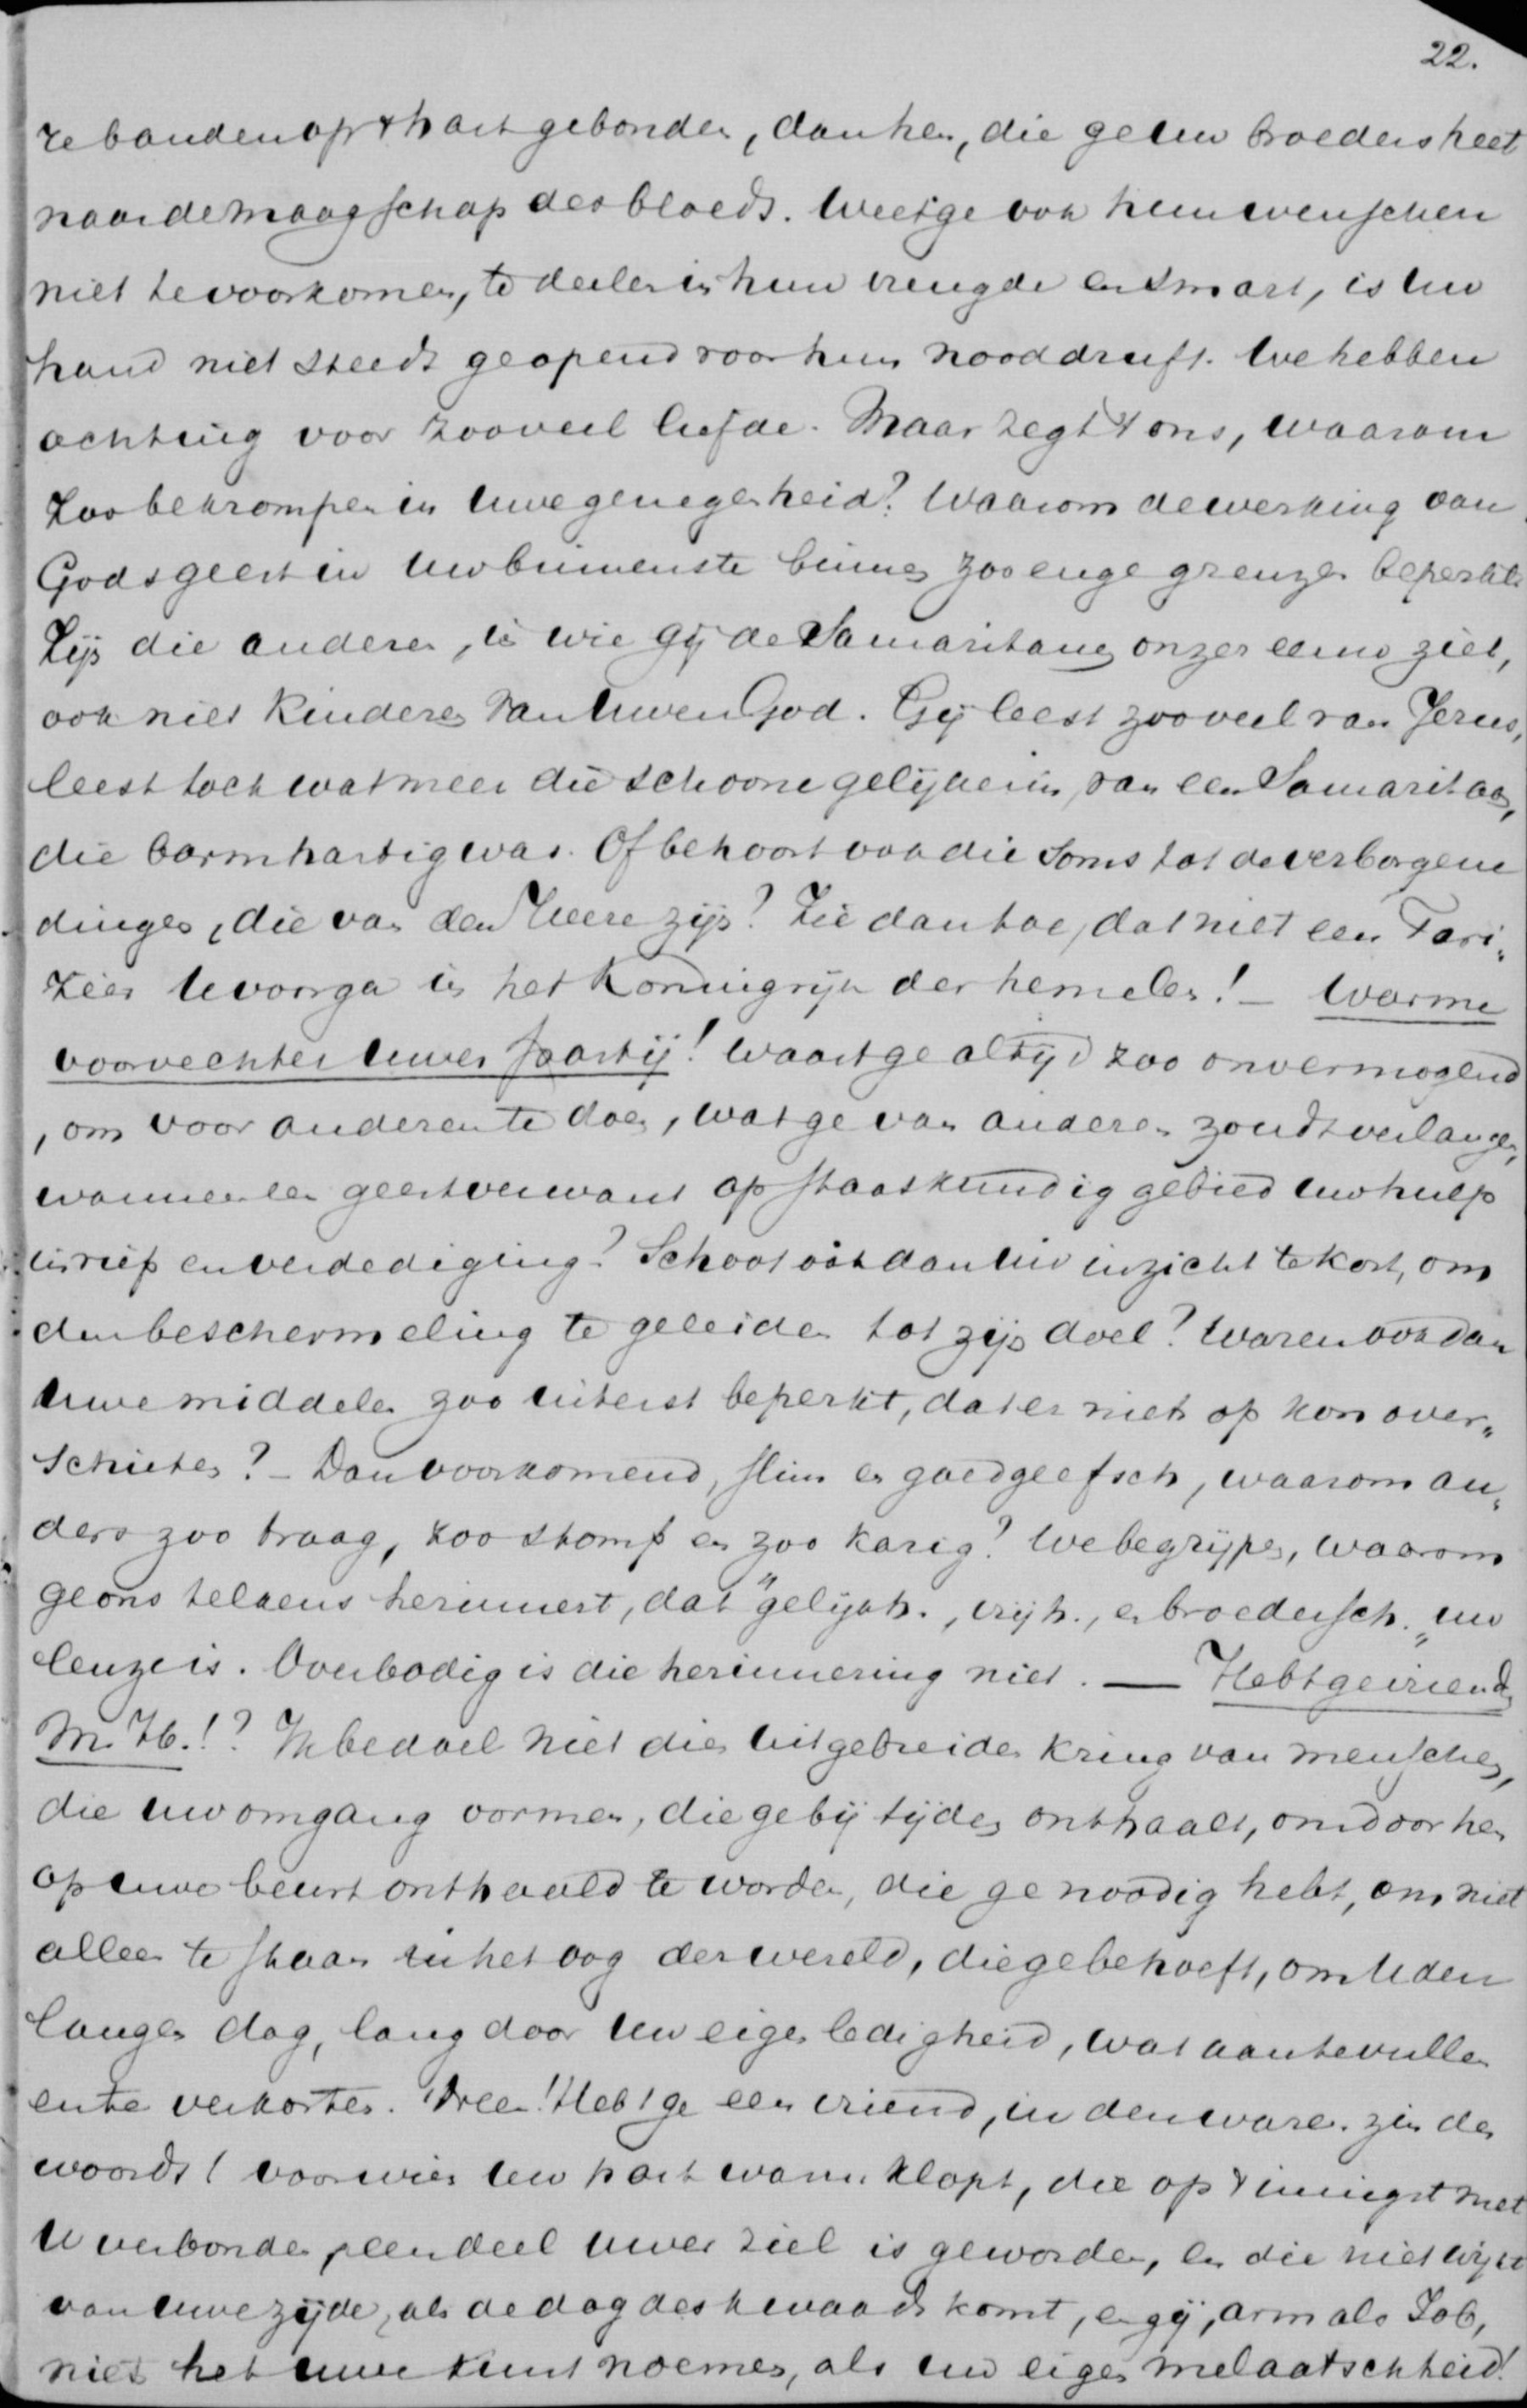 22.
ze banden op 't hart gebonden, dan hen, die ge uw broeders heet
naar de maagschap des bloeds. Weet ge ook hun wenschen
niet te voorkomen, te deelen in hun vreugde en smart, is uw
hand niet steeds geopend voor hun nooddruft. We hebben
achting voor zooveel liefde. Maar zegt 't ons, waarom
zoo bekrompen in uwe genegenheid? Waarom de werking van
Gods geest in uw binnenste binnen zoo enge grenzen beperkt?
Zijn die anderen, in wie gij de Samaritanen onzer eeuw ziet,
ook niet kinderen van uwen God. Gij leest zooveel van Jezus,
leest toch wat meer die schoone gelijkenis, van een Samaritaan,
die barmhartig was. Of behoort ook die soms tot de verborgene
dingen, die van den Heere zijn? Zie dan toe, dat niet een Fari„
zeer U voorga in het Koningrijk der hemelen! – Warme
voorvechter uwer partij! Waart ge altijd zoo onvermogend
, om voor anderen te doen, wat ge van anderen zoudt verlangen,
wanneer een geestverwant op staatkundig gebied uw hulp
inriep en verdediging? Schoot ook dan uw inzicht te kort, om
den beschermeling te geleiden tot zijn doel? Waren ook dan
uwe middelen zoo uiterst beperkt, dat er niets op kon over„
schieten? – Dan voorkomend, slim en goedgeefsch, waarom an„
ders zoo traag, zoo stomp en zoo karig? We begrijpen, waarom
ge ons telkens herinnert, dat "gelijkh., vrijh., en broedersch.„ uw
leuze is. Overbodig is die herinnering niet. — Hebt ge vrienden
M. H.!? Ik bedoel niet dien uitgebreiden kring van menschen,
die uw omgang vormen, die ge bij tijden onthaalt, om door hen
op uwe beurt onthaald te worden, die ge noodig hebt, om niet
alleen te staan in het oog der wereld, die ge behoeft, om U den
langen dag, lang door uw eigen ledigheid, wat aan te vullen
en te verkorten. Neen! Hebt ge een vriend, in den waren zin des
woords! voor wien uw hart warm klopt, die op 't innigst met
U verbonden, een deel uwer ziel is geworden, en die niet wijkt
van uwe zijde, als de dag des kwaads komt, en gij, arm als Job,
niets het uwe kunt noemen, als uw eigen melaatschheid!